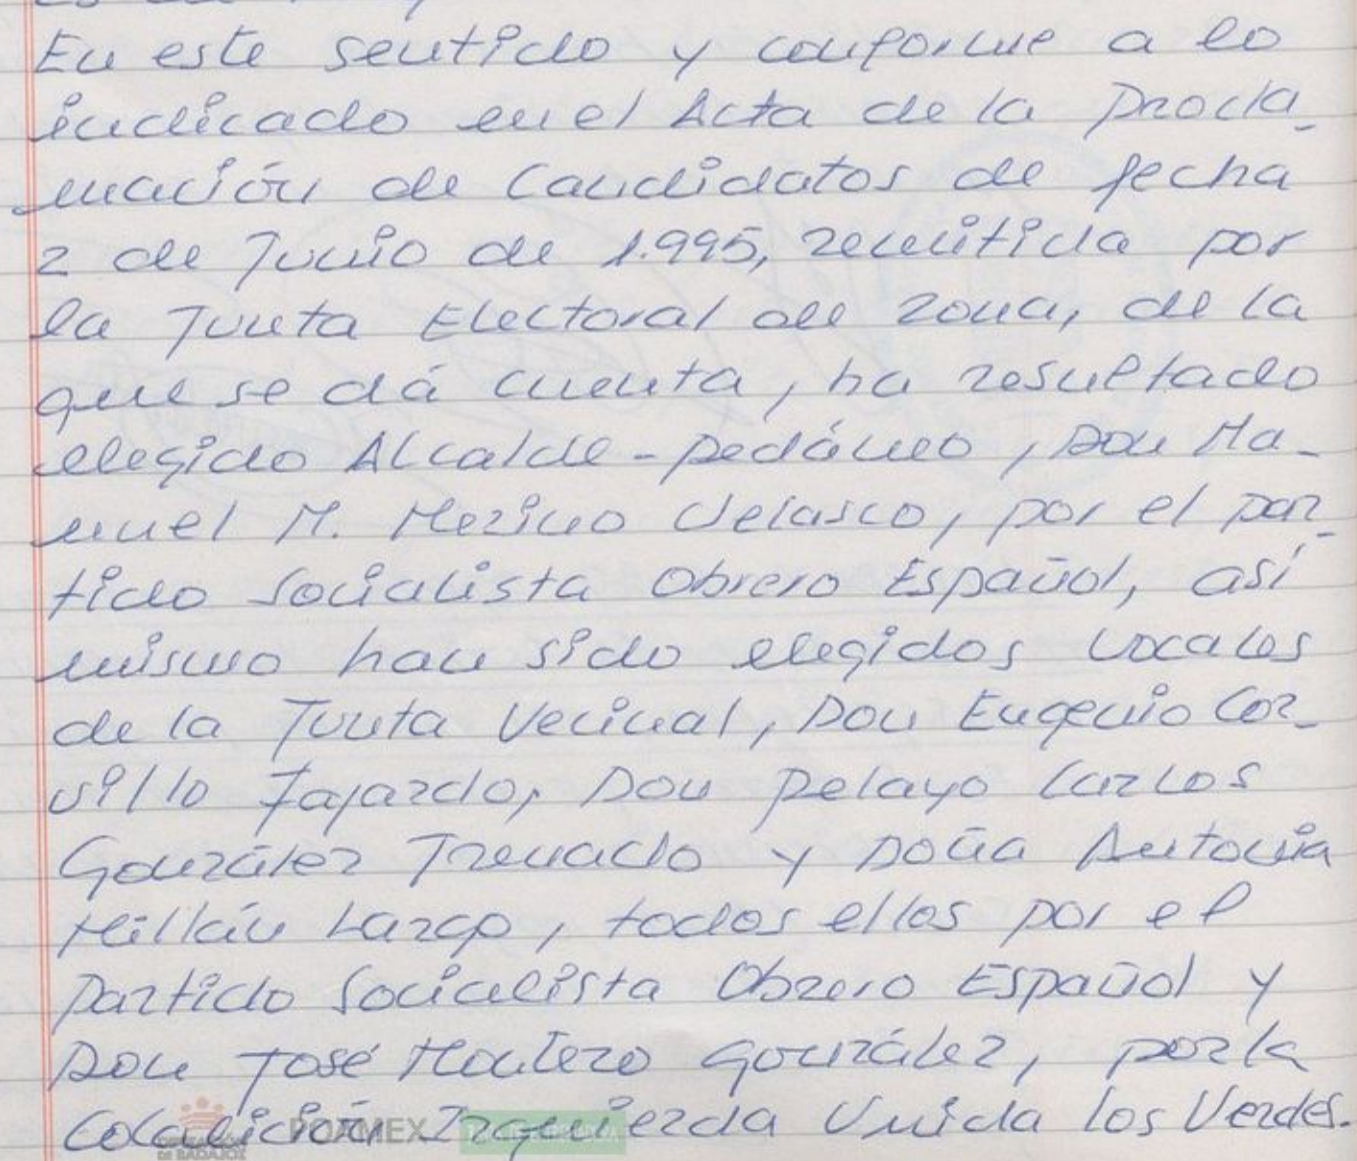 En este sentido y conforme a lo
indicado en el Acta de la Procla_
mación de Candidatos de fecha
2 de Junio de 1.995, remitida por
la Junta Electoral de zona, de la
que se dá cuenta, ha resultado
elegido Alcalde-pedáneo, Don Ma_
nuel M. Merino Velasco, por el par_
tido Socialista Obrero Español, así
mismo han sido elegidos Vocales
de la Junta Vecinal, Don Eugenio Cor_
villo Fajardo, Don Pelayo Carlos
González Trenado y Doña Antonia
Millán Largo, todos ellos por el
Partido Socialista Obrero Español y
Don José Montero González, por la
Coalición Izquierda Unida los Verdes.
DE BADAJOZ